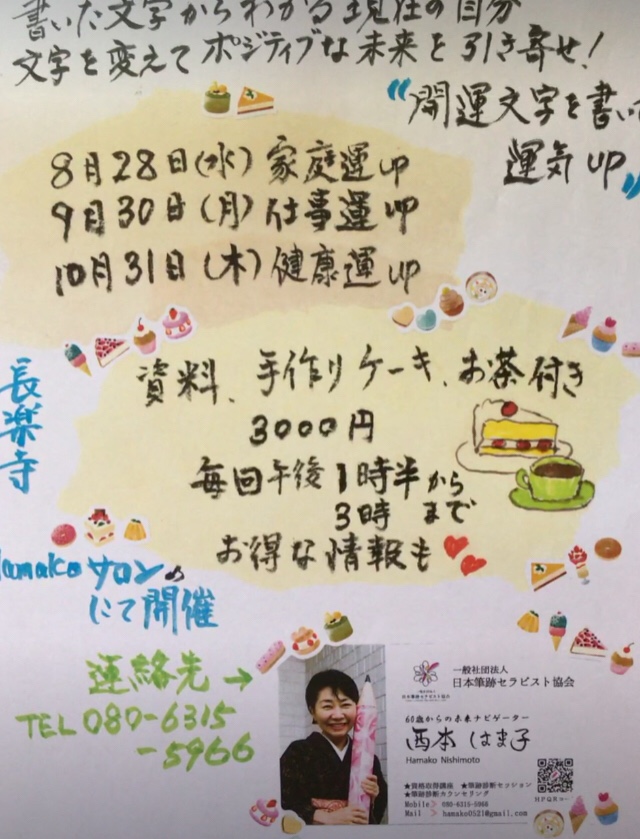 書いた文字からわかる現在の自分
文字を変えてポジティブな未来を引き寄せ!
“開運文字を書い
運気UP”
8月28日(水)家庭運UP
9月30日(月)仕事運UP
10月31日(木)健康運UP
資料、手作りケーキ、お茶付き
3000円
毎回午後1時半から
3時まで
お得な情報も
長楽寺
Hamakoサロン
にて開催
連絡先→
TEL080-6315
-5966
一般社団法人
日本筆跡セラピスト協会
60歳からの未来ナビゲーター
西本 はま子
Hamako Nishimoto
★資格取得講座 ★筆跡診断セッション
★筆跡診断カウンセリング
Mobile> 080-6315-5966
Mail> hamako0521@gmail.com